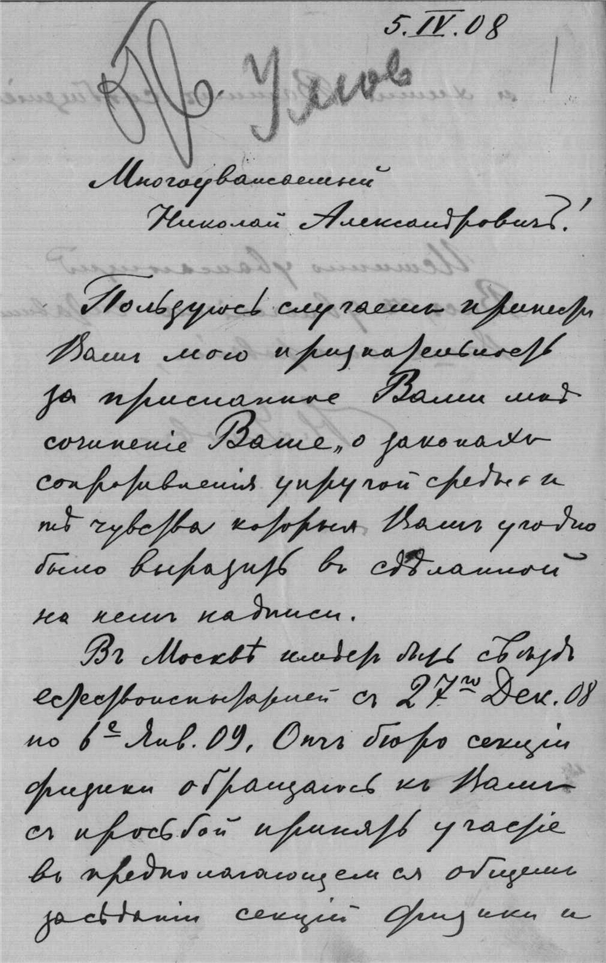 5.IV.08
Отв. Умов
Многоуважаемый
Николай Александровичъ!
Пользуюсь случаемъ принести
Вамъ мою признательность
за присланное Вами мнѣ
сочиненіе Ваше „о законахъ
сопротивленія упругой среды“ и
тѣ чувства которыя Вамъ угодно
было выразить въ сдѣланной
на немъ надписи.
Въ Москвѣ имѣетъ быть съѣздъ
естествоиспытателей съ 27го Дек. 08
по 6е Янв. 09. Отъ бюро секціи
физики обращаюсь къ Вамъ
съ просьбой принять участіе
въ предполагающемся общемъ
засѣданіи секцій физики и